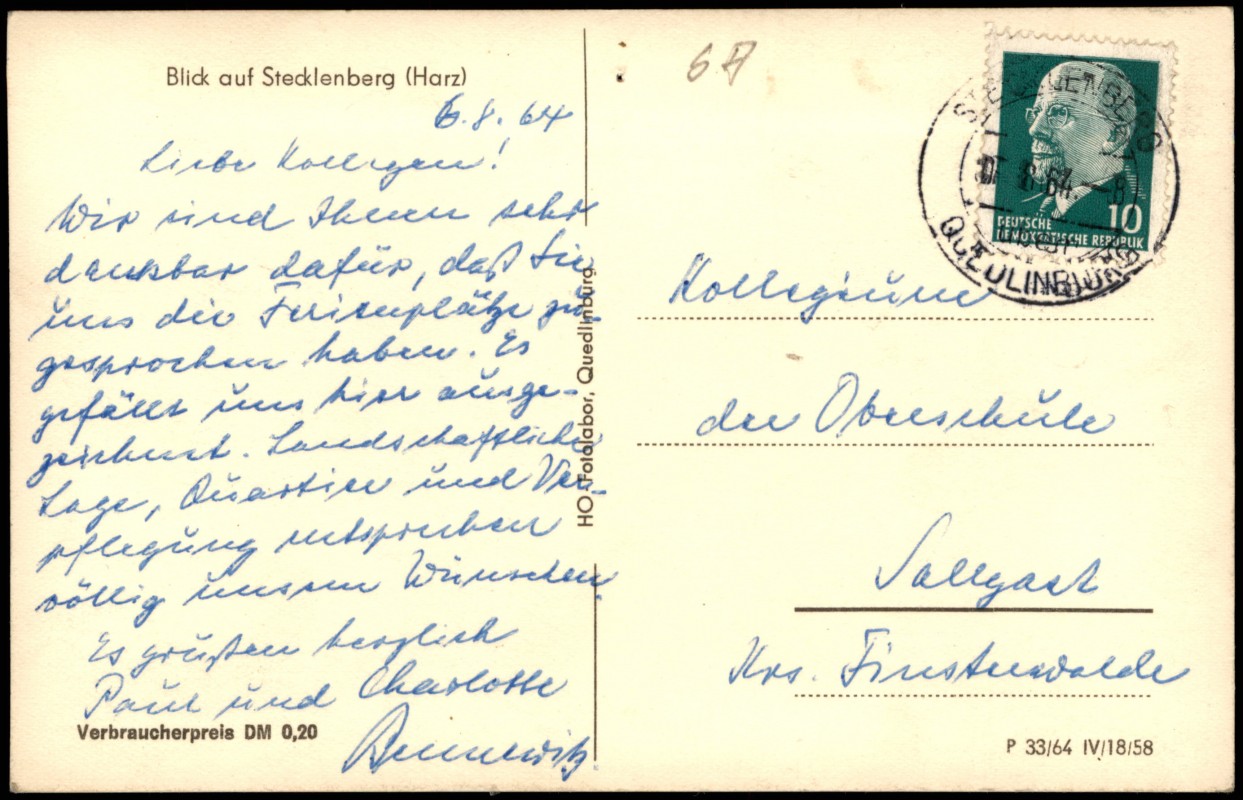 Blick auf Stecklenberg (Harz)
6.8.64
Liebe Kollegen!
Wir sind Ihnen sehr
dankbar dafür, daß Sie
uns die Ferienplätze zu-
gesprochen haben. Es
gefällt uns hier ausge-
zeichnet. Landschaftliche
Lage, Quartier und Ver-
pflegung entsprechen
völlig unsern Wünschen.
Es grüßen herzlich
Paul und Charlotte
Bennewitz
Verbraucherpreis DM 0,20
HO Fotolabor, Quedlinburg
67
STECKLENBERG
8.64.-8
QUEDLINBURG
10
DEUTSCHE
DEMOKRATISCHE REPUBLIK
Kollegium
der Oberschule
Sallgast
Krs. Finsterwalde
P 33/64 IV/18/58